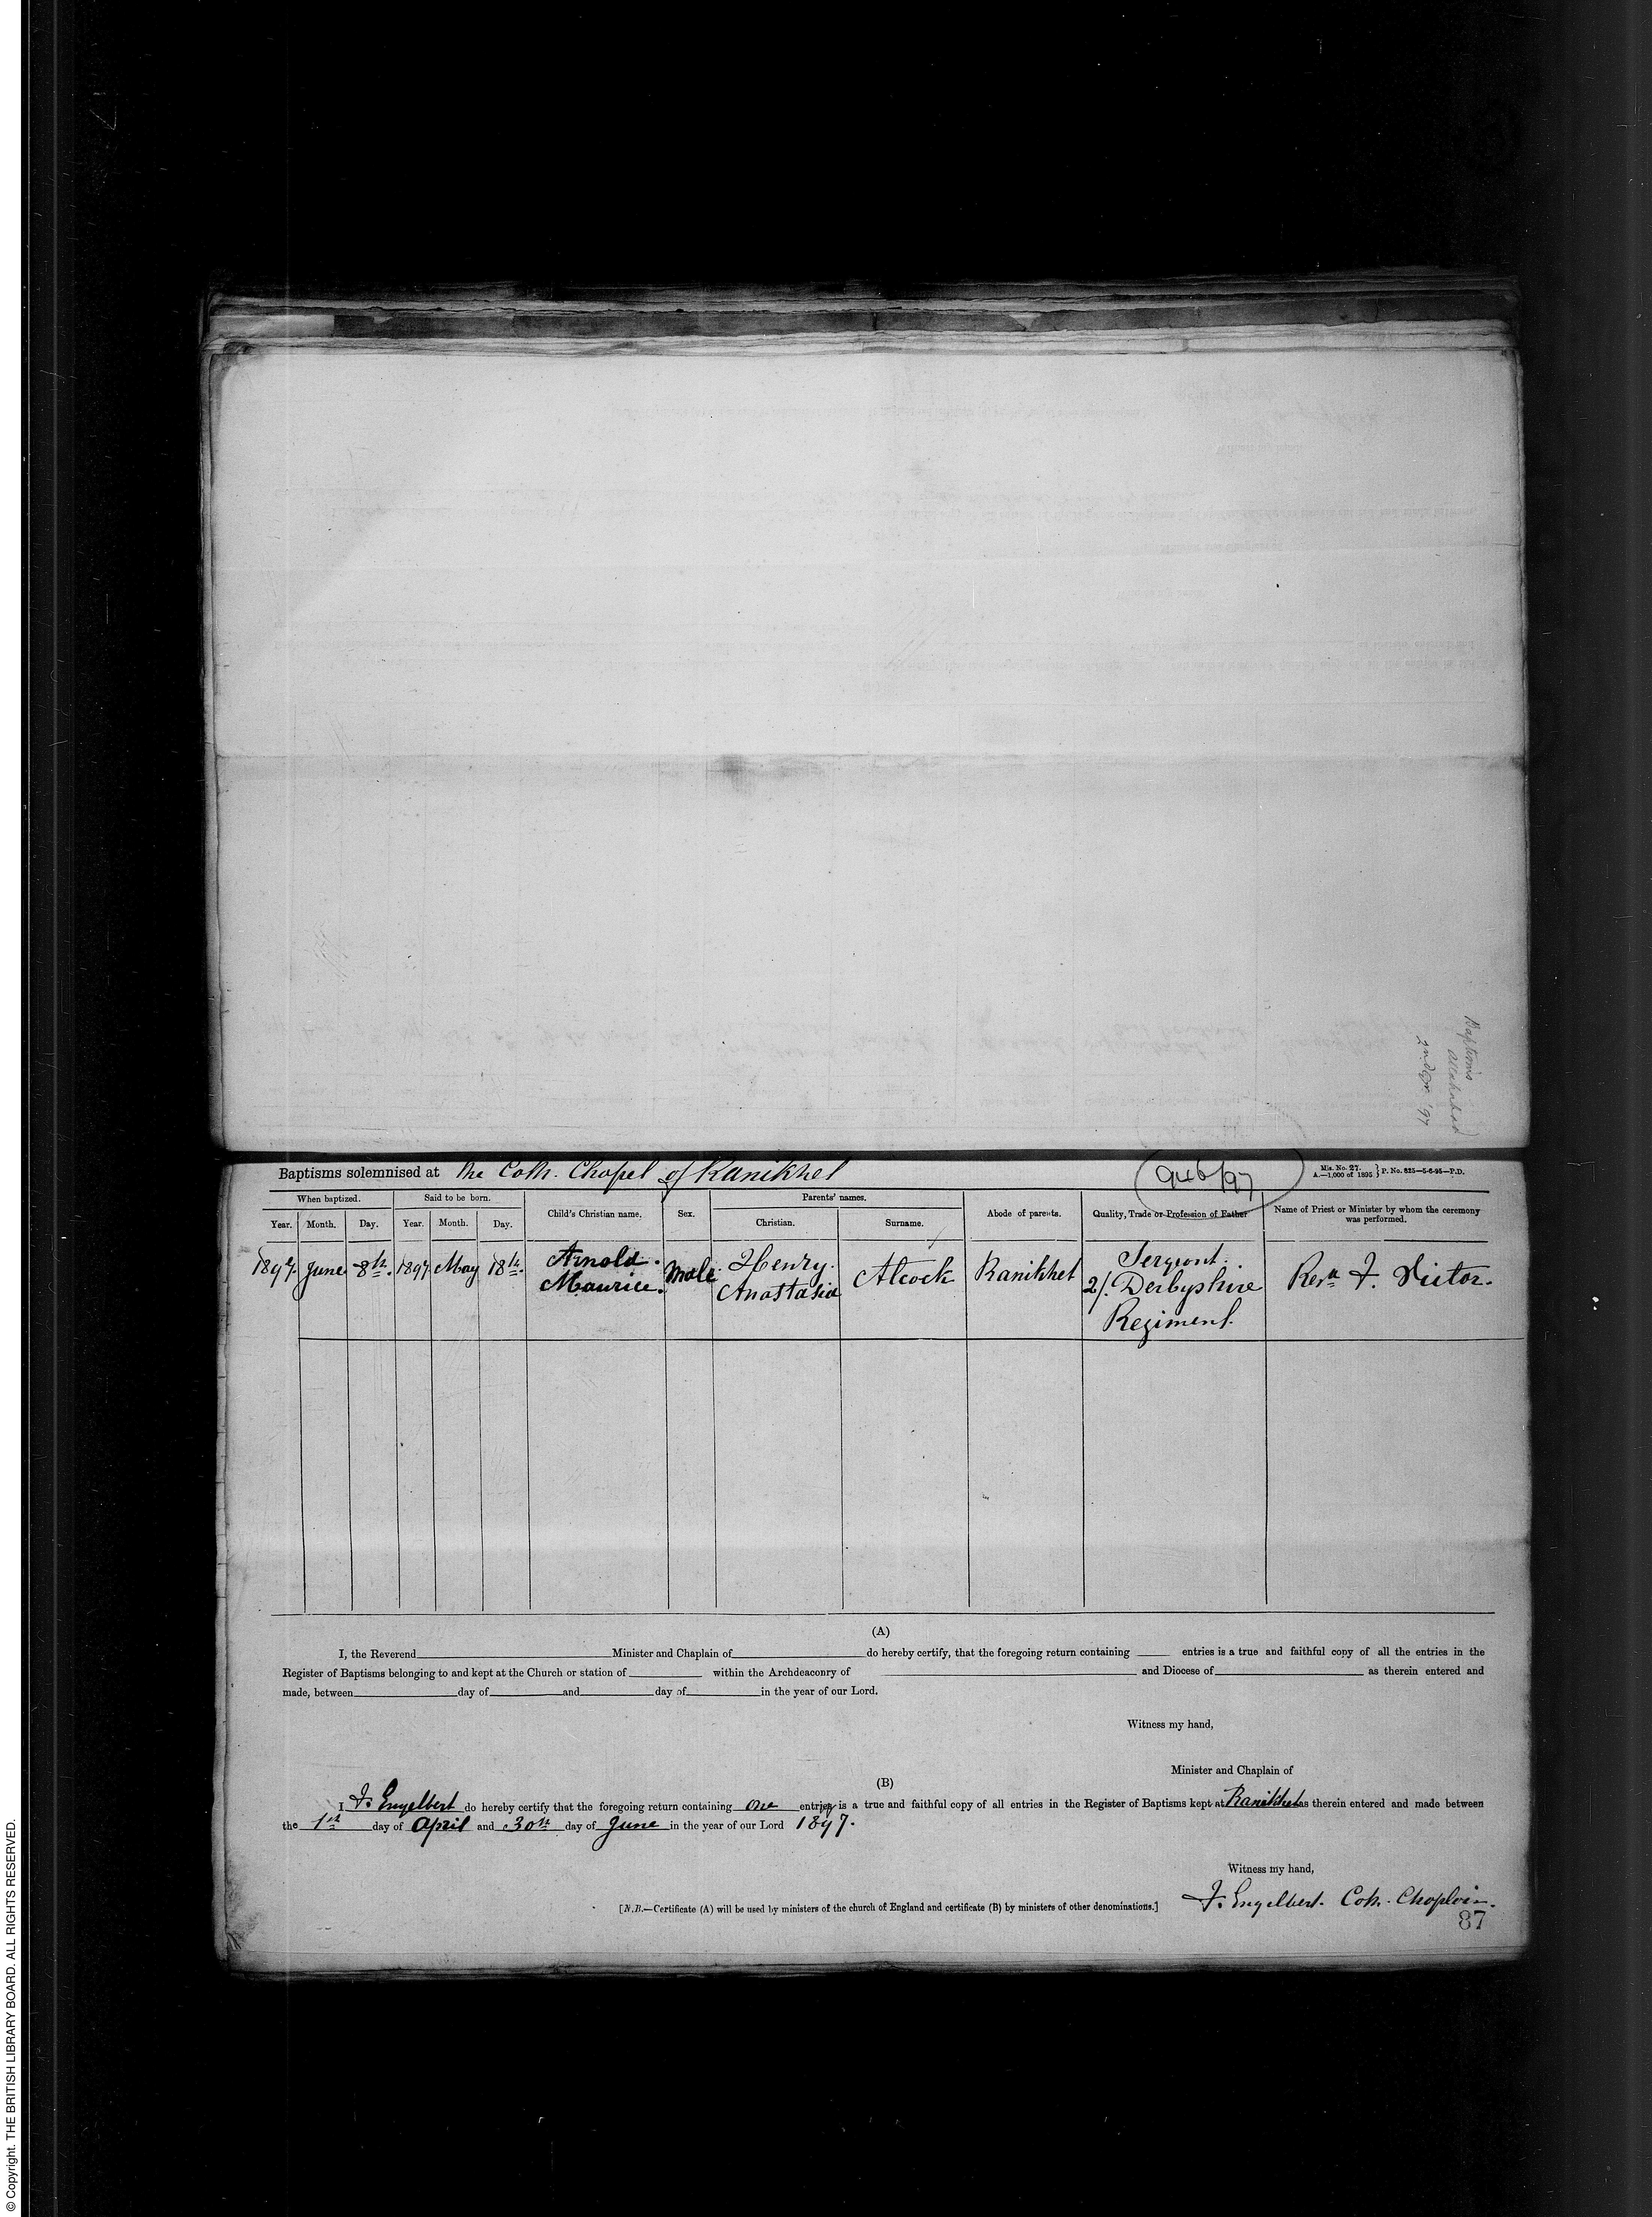 Baptisms
Allahabad
2nd Qr '97
Baptisms solemnised at the Cath. Chapel of Ranikhet
946/97
Mis. No. 27.
A.—1,000 of 1895 } P. No. 825—5-6-95—P.D.
When baptized. Said to be born. Child's Christian name. Sex. Parents' names. Abode of parents. Quality, Trade or Profession of Father Name of Priest or Minister by whom the ceremony was performed.
Year. Month. Day. Year. Month. Day. Christian. Surname.
1897. June 8th. 1897 May 18th. Arnold. Maurice. Male Henry. Anastasia Alcock Ranikhet Sergeont. 2/. Derbyshire Regiment. Revd. F. Victor.
(A)
I, the Reverend Minister and Chaplain of do hereby certify, that the foregoing return containing entries is a true and faithful copy of all the entries in the
Register of Baptisms belonging to and kept at the Church or station of within the Archdeaconry of and Diocese of as therein entered and
made, between day of and day of in the year of our Lord.
Witness my hand,
Minister and Chaplain of
(B)
I F. Engelbert do hereby certify that the foregoing return containing one entries is a true and faithful copy of all entries in the Register of Baptisms kept at Ranikhet as therein entered and made between
the 1st day of April and 30th day of June in the year of our Lord 1897.
Witness my hand,
F. Engelbert. Cath. Chaplain.
[N.B.—Certificate (A) will be used by ministers of the church of England and certificate (B) by ministers of other denominations.]
87
© Copyright. THE BRITISH LIBRARY BOARD. ALL RIGHTS RESERVED.